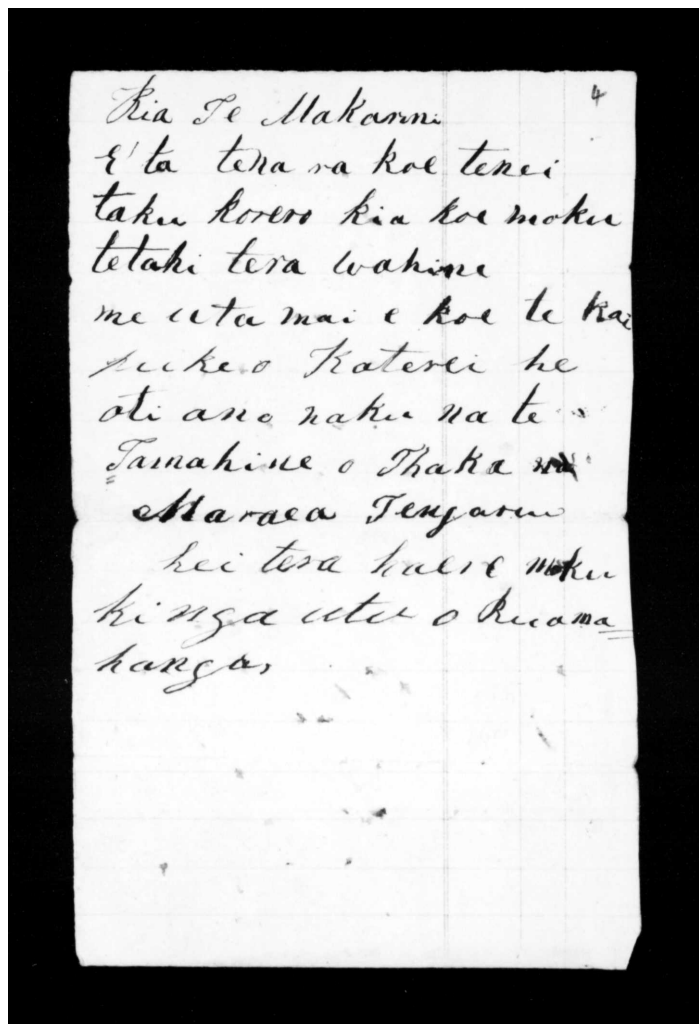 4
Kia Te Makarini
E' ta tena ra koe tenei
taku korero kia koe moku
tetahi tera wahine
me uta mai e koe te Kai
puke o Katerei he
oti ano naku na te
Tamahine o Ihaka na
Maraea Tengaruu
hei tera haere moku
ki nga utu o Ruama=
hanga,